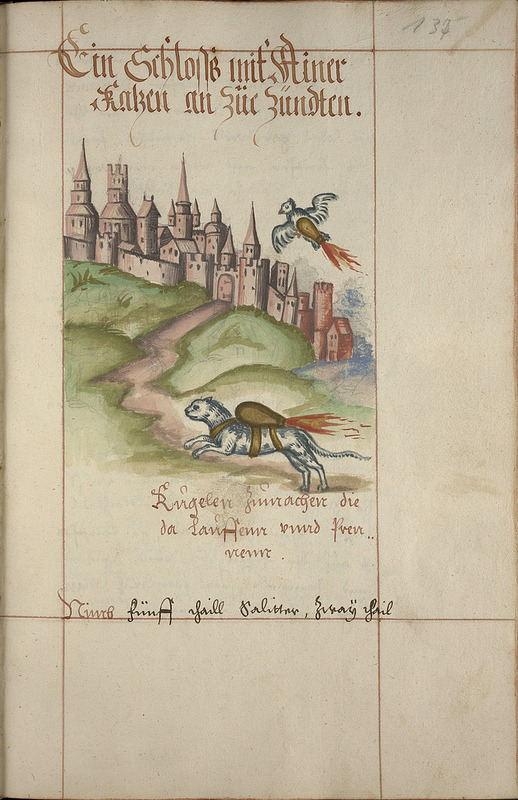 137
Ein Schloss mit Ainer
Katzen an züe Zündten.
Kugelen Zumachen die
da Lauffenn vnnd Pren„
nenn.
Nimb fünff thaill Salitter, Zway thail